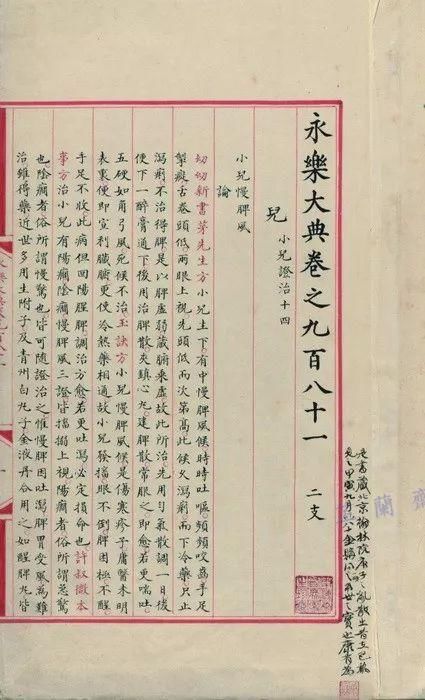 永樂大典卷之九百八十一　二支
兒　小兒證治十四
小兒慢脾風
論
幼幼新書茅先生方小兒生下有中慢脾風候時時吐嘔頻頻咬齒手足
掣癡舌卷頭低兩眼上視先頭低而次第高此候久瀉痢而下冷藥只止
瀉痢不治得脾是以脾虛藏腑乘虛故此所治先用勻氣散調一日後
便下一醉膏通下後用治脾散夾鎮心丸建脾散常服之即愈若更喘吐
五硬如角弓風死候不治玉訣方小兒慢脾風候是傷寒疹子庸醫未明
表裏便即宣利臟腑更使冷熱藥相通故小兒發搐眼不倒脾困極不醒
手足不收此病但回陽醒脾調治方愈若更吐瀉必定損命也許叔微本
事方治小兒有陽癇陰癇慢脾風三證皆搐搦上視陽癇者俗所謂急驚
也陰癇者俗所謂慢驚也皆可隨證治之惟慢脾因吐瀉脾胃受風為難
治雖得藥近世多用生附子及青州白丸子金液丹合用之如醒脾丸皆